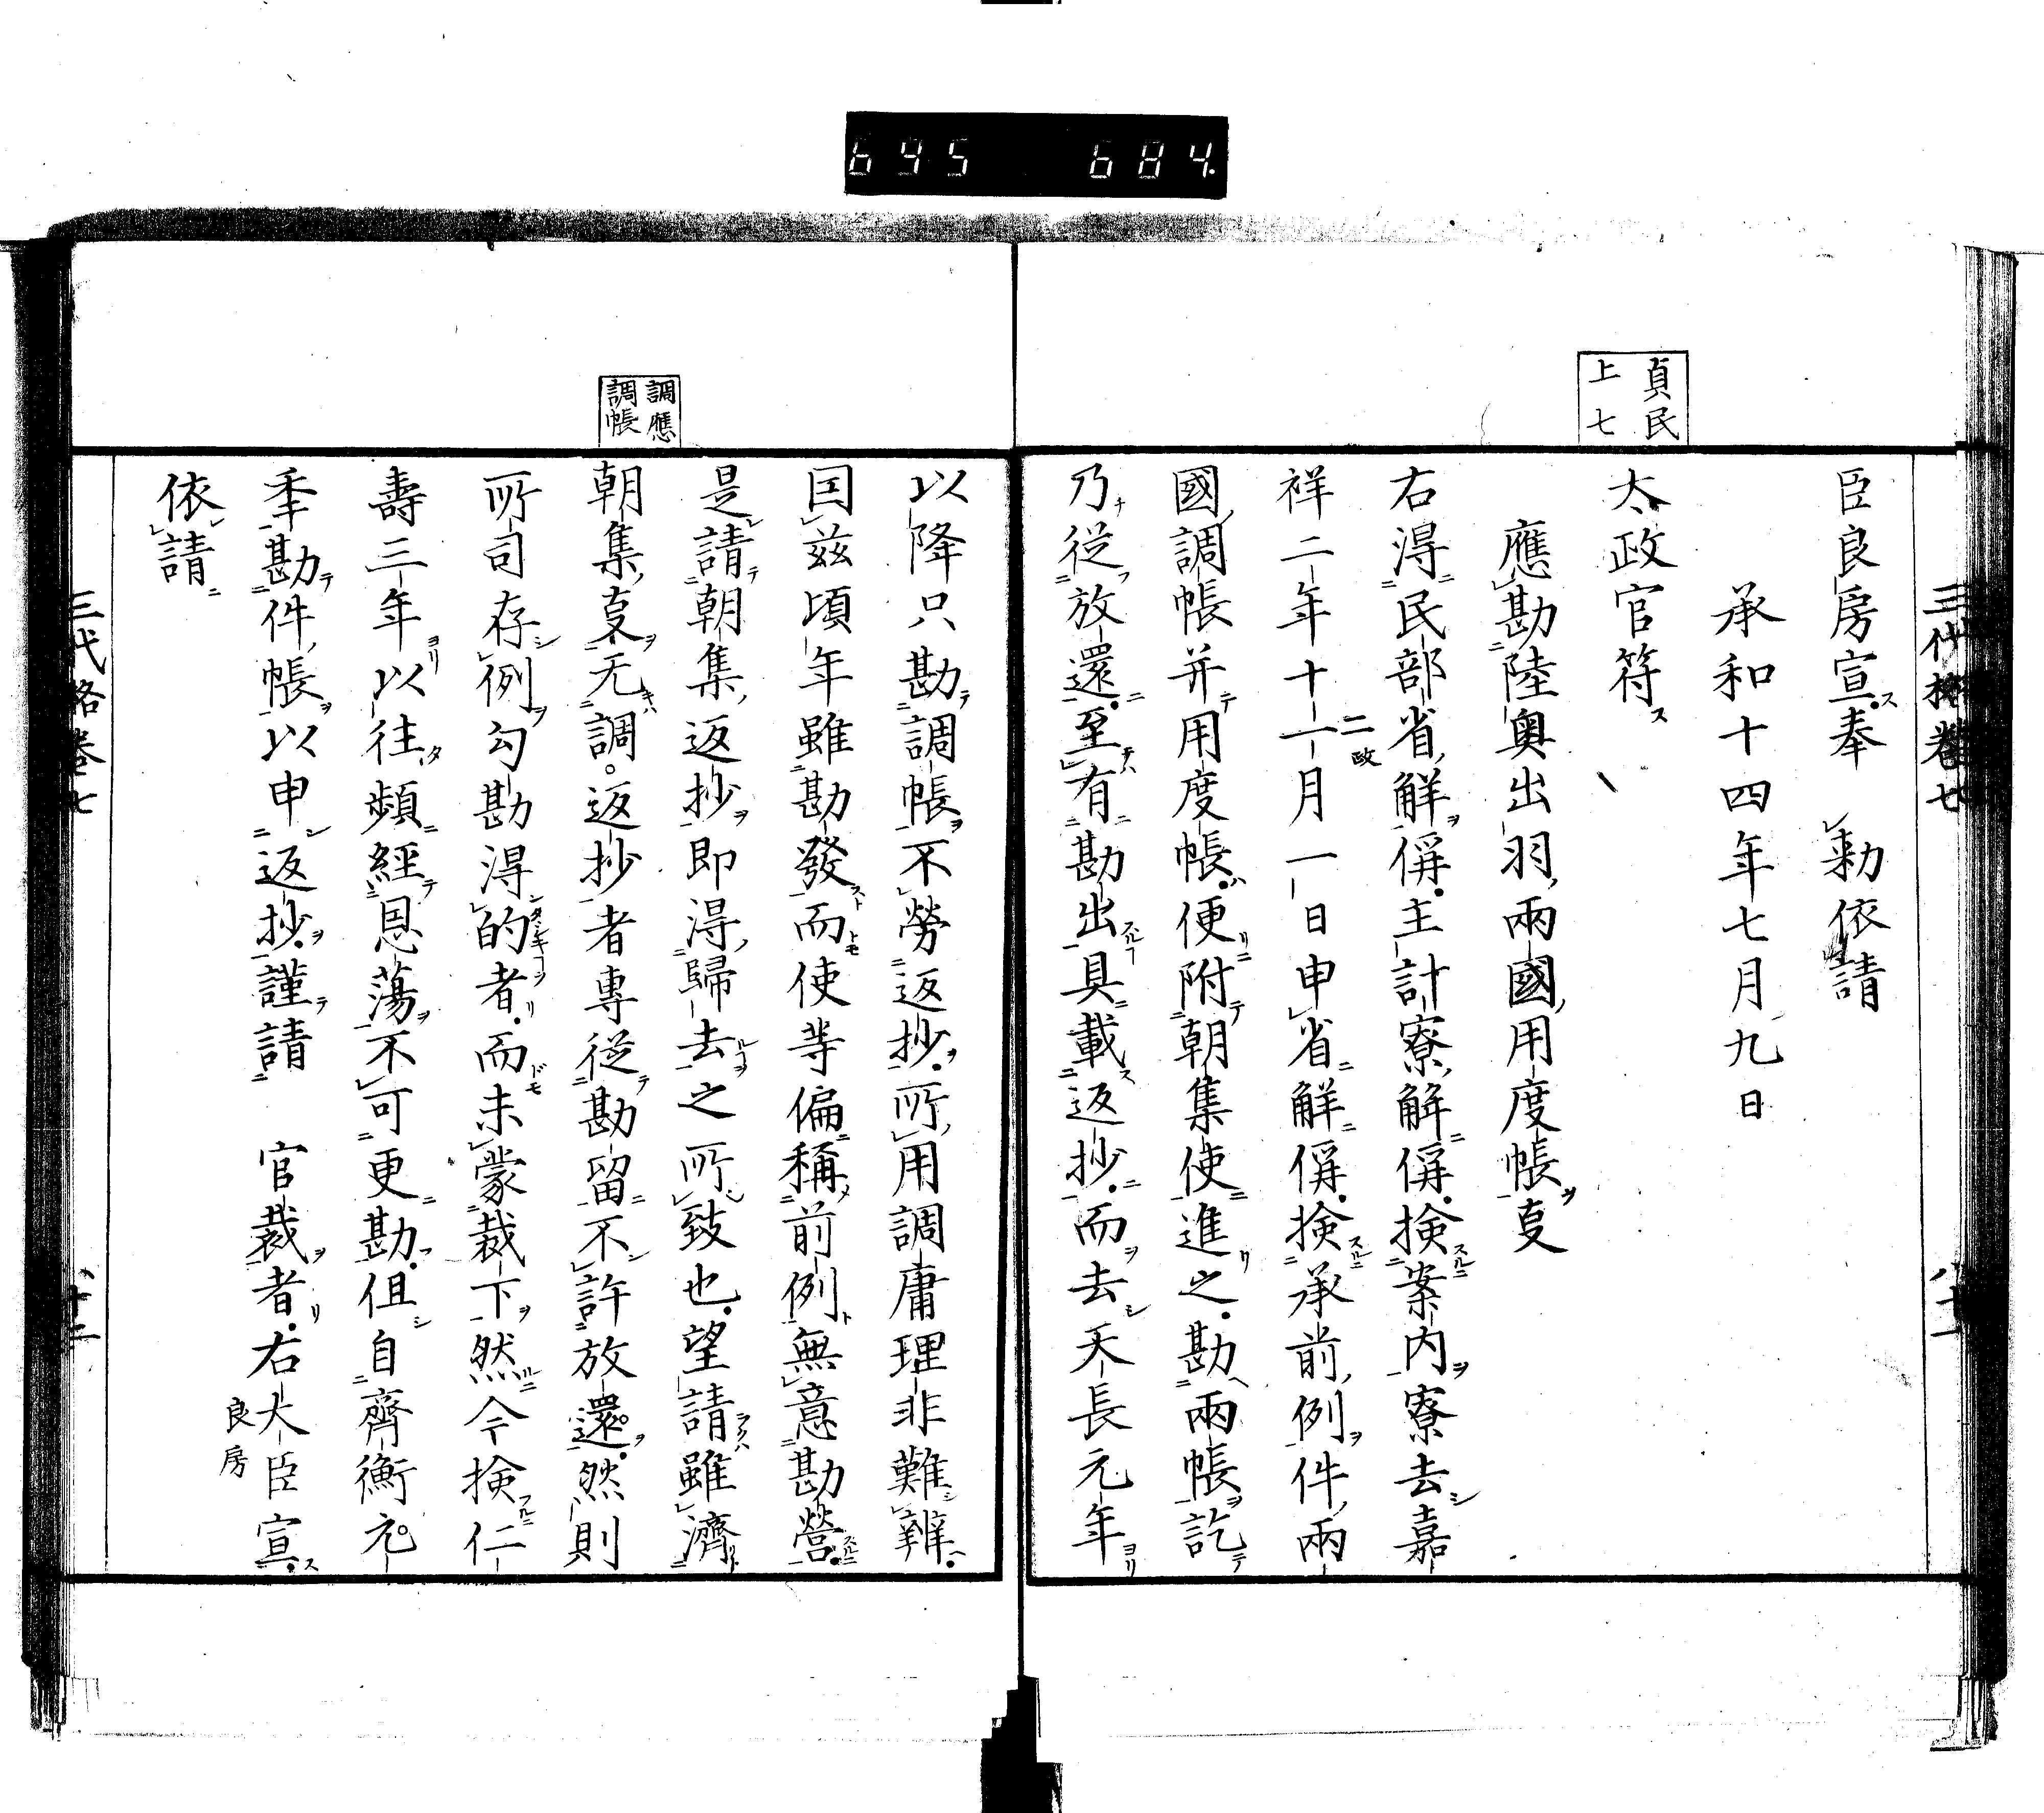 695 684.
三代格卷七
八十一
臣良房宣奉 勅依請
承和十四年七月九日
貞民
上七
太政官符
應勘陸奥出羽兩國用度帳叓
右得民部省解偁主計寮解偁検案内寮去嘉
祥二年十一月一日申省解偁検承前例件兩
二政
國調帳并用度帳便附朝集使進之勘兩帳訖
乃從放還至有勘出具載返抄而去天長元年
以降只勘調帳不勞返抄所用調庸理非難辨
因茲頃年雖勘發而使等偏稱前例無意勘營
是請朝集返抄即得歸去之所致也望請雖濟
調應
調帳
朝集叓无調返抄者專從勘留不許放還然則
所司存例勾勘得的者而未蒙裁下然今検仁
壽三年以往頻經恩蕩不可更勘伹自齊衡元
年勘件帳以申返抄謹請 官裁者右大臣宣
良房
依請
三代格卷七
八十二